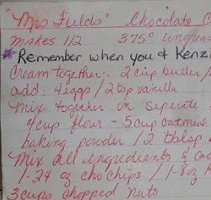 "Mrs Fields" Chocolate C
makes 112 375° ungreas
*Remember when you & Kenz
Cream together: 2 cup butter/
add 4 eggs/2 tsp vanilla
Mix together in seperate
4 cup flour - 5 cup oatmeal
baking powder / 2 tblsp
Mix all ingredients &
1-24 oz cho chips / 1-8 oz
3 cups chopped nuts